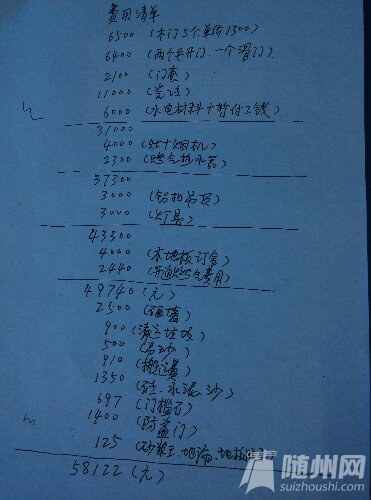 费用清单
6500 (木门5个单价1300)
6400 (两个平开门.一个滑门)
2100 (门套)
11000
6000 (水电材料+暂付工钱)
31000
4000 (灶+烟机)
2300 (燃气热水器)
37300
3000 (铝扣吊顶)
3000 (灯具)
43300
4000 (木地板订金)
2440 (开通燃气费用)
49740 (元)
2500 (砸墙)
900 (清运垃圾)
500
910 (搬运费)
1350 (砖.水泥.沙)
697 (门槛石)
1400 (防盗门)
125
58122 (元)
随州网
suizhoushi.com